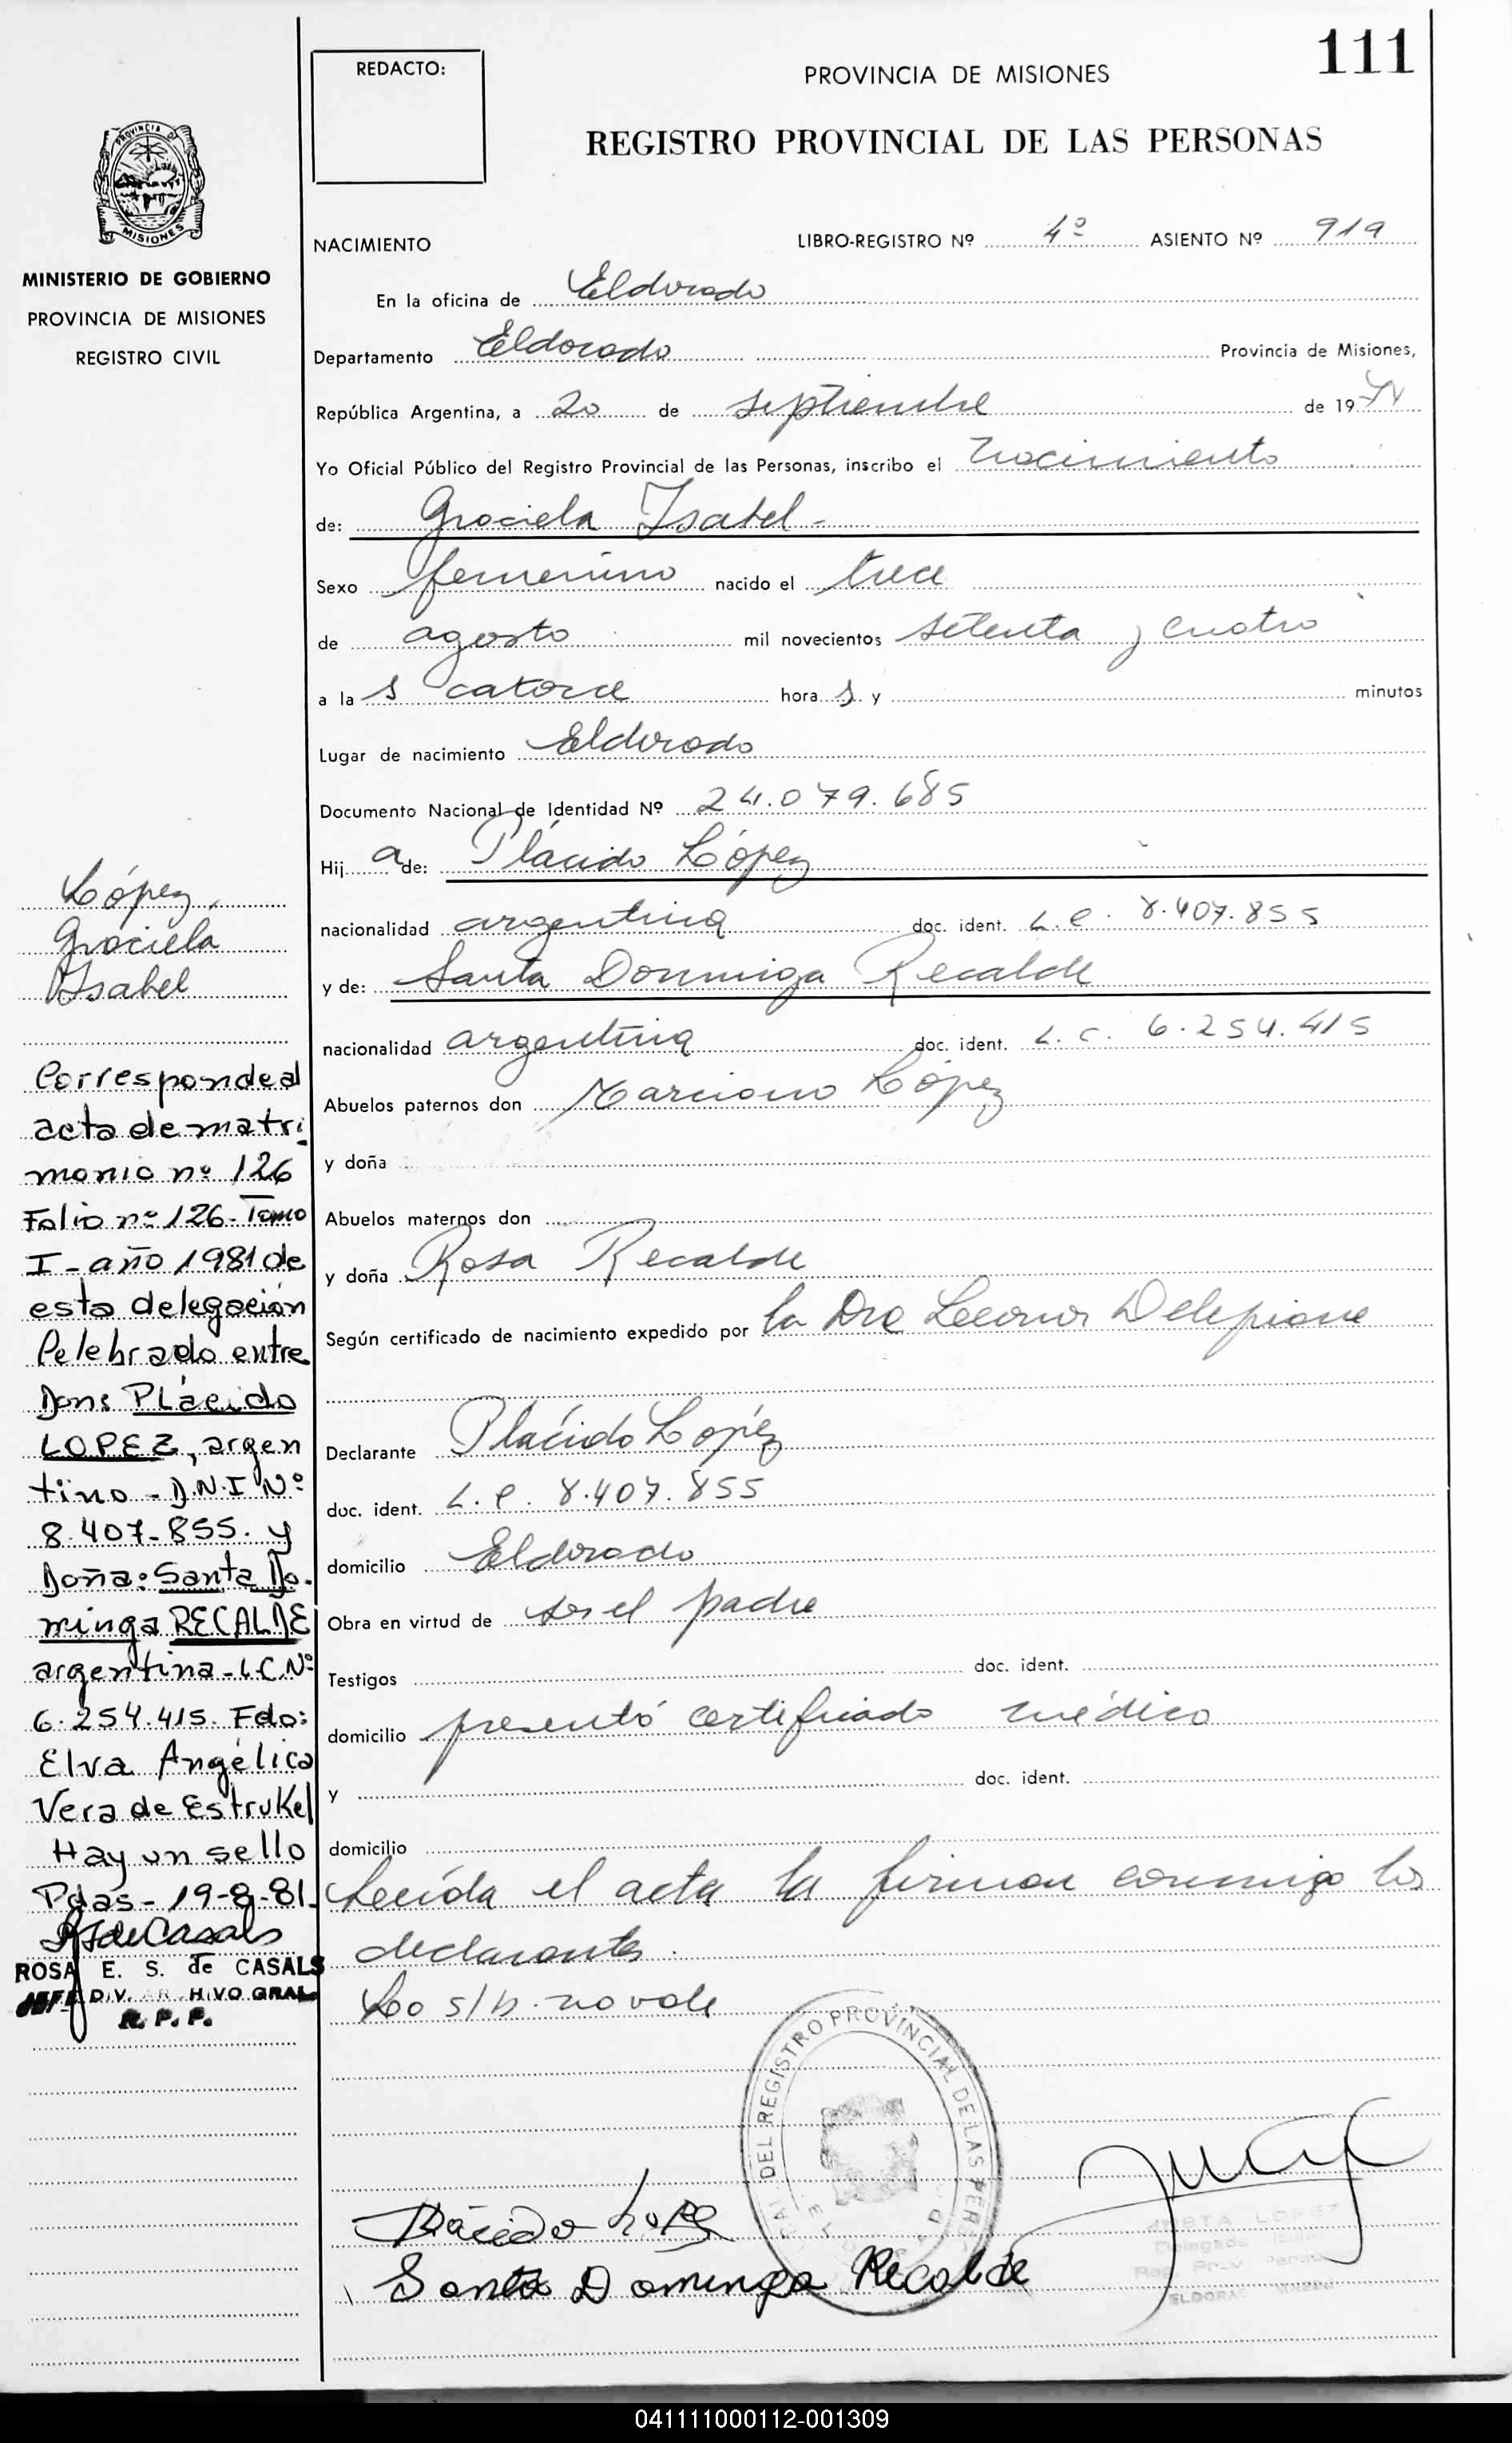 111
REDACTO:
PROVINCIA DE MISIONES
REGISTRO PROVINCIAL DE LAS PERSONAS
PROVINCIA DE
MISIONES
MINISTERIO DE GOBIERNO
PROVINCIA DE MISIONES
REGISTRO CIVIL
NACIMIENTO
LIBRO-REGISTRO Nº 4º ASIENTO Nº 919
En la oficina de Eldorado
Departamento Eldorado Provincia de Misiones,
República Argentina, a 20 de septiembre de 1974
Yo Oficial Público del Registro Provincial de las Personas, inscribo el nacimiento
de: Graciela Isabel-
Sexo femenino nacido el trece
de agosto mil novecientos setenta y cuatro
a la s catorce hora s y minutos
Lugar de nacimiento Eldorado
Documento Nacional de Identidad Nº 24.079.685
Hij a de: Plácido López
nacionalidad argentina doc. ident. L.E. 8.407.855
y de: Santa Dominga Recalde
nacionalidad argentina doc. ident. L.C. 6.254.415
Abuelos paternos don Marciano López
y doña
Abuelos maternos don
y doña Rosa Recalde
Según certificado de nacimiento expedido por la Dra Leonor Delepiane
Declarante Plácido López
doc. ident. L.E. 8.407.855
domicilio Eldorado
Obra en virtud de ser el padre
Testigos doc. ident.
domicilio presentó certificado médico
y doc. ident.
domicilio
Leída el acta la firman conmigo los
declarantes.
s/b. no vale
López,
Graciela
Isabel
Corresponde al
acta de matri
monio nº 126
Folio nº 126-Tomo
I-año 1981 de
esta delegación
Celebrado entre
Don: PLácido
LOPEZ, argen
tino-D.N.I Nº
8.407-855. y
Doña: Santa Do-
minga RECALDE
argentina-L.C.Nº
6.254.415. Fdo:
Elva Angélica
Vera de Estrukel
Hay un sello
Pdas-19-8-81.
ROSA E. S. de CASALS
JEFE DIV. ARCHIVO GRAL
R. P. P.
DEL REGISTRO PROVINCIAL DE LAS PERS
Plácido López
Santa Dominga Recalde
LOPEZ
041111000112-001309